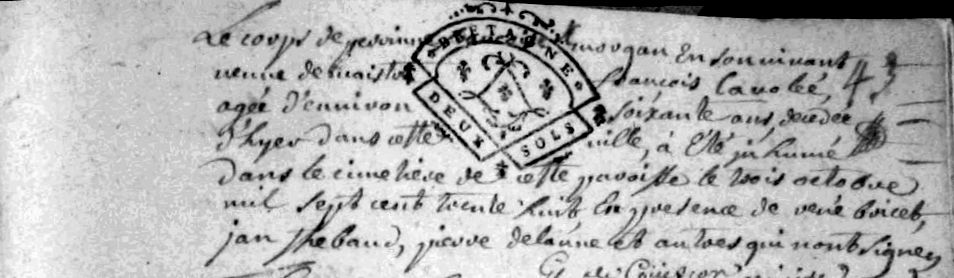 Le corps de perrinne morgan En son vivant
veuve de maistre francois Cavolée, 43
agée d'environ soixante ans, decedée
d'hyer dans cette ville, a Eté jnhumé
dans le cimetiere de cette paroisse le trois octobre
mil sept cent trente huit En presence de rené boicel,
jan thebaud, pierre delaune et autres qui nont signé
BRETAGNE
DEUX SOLS